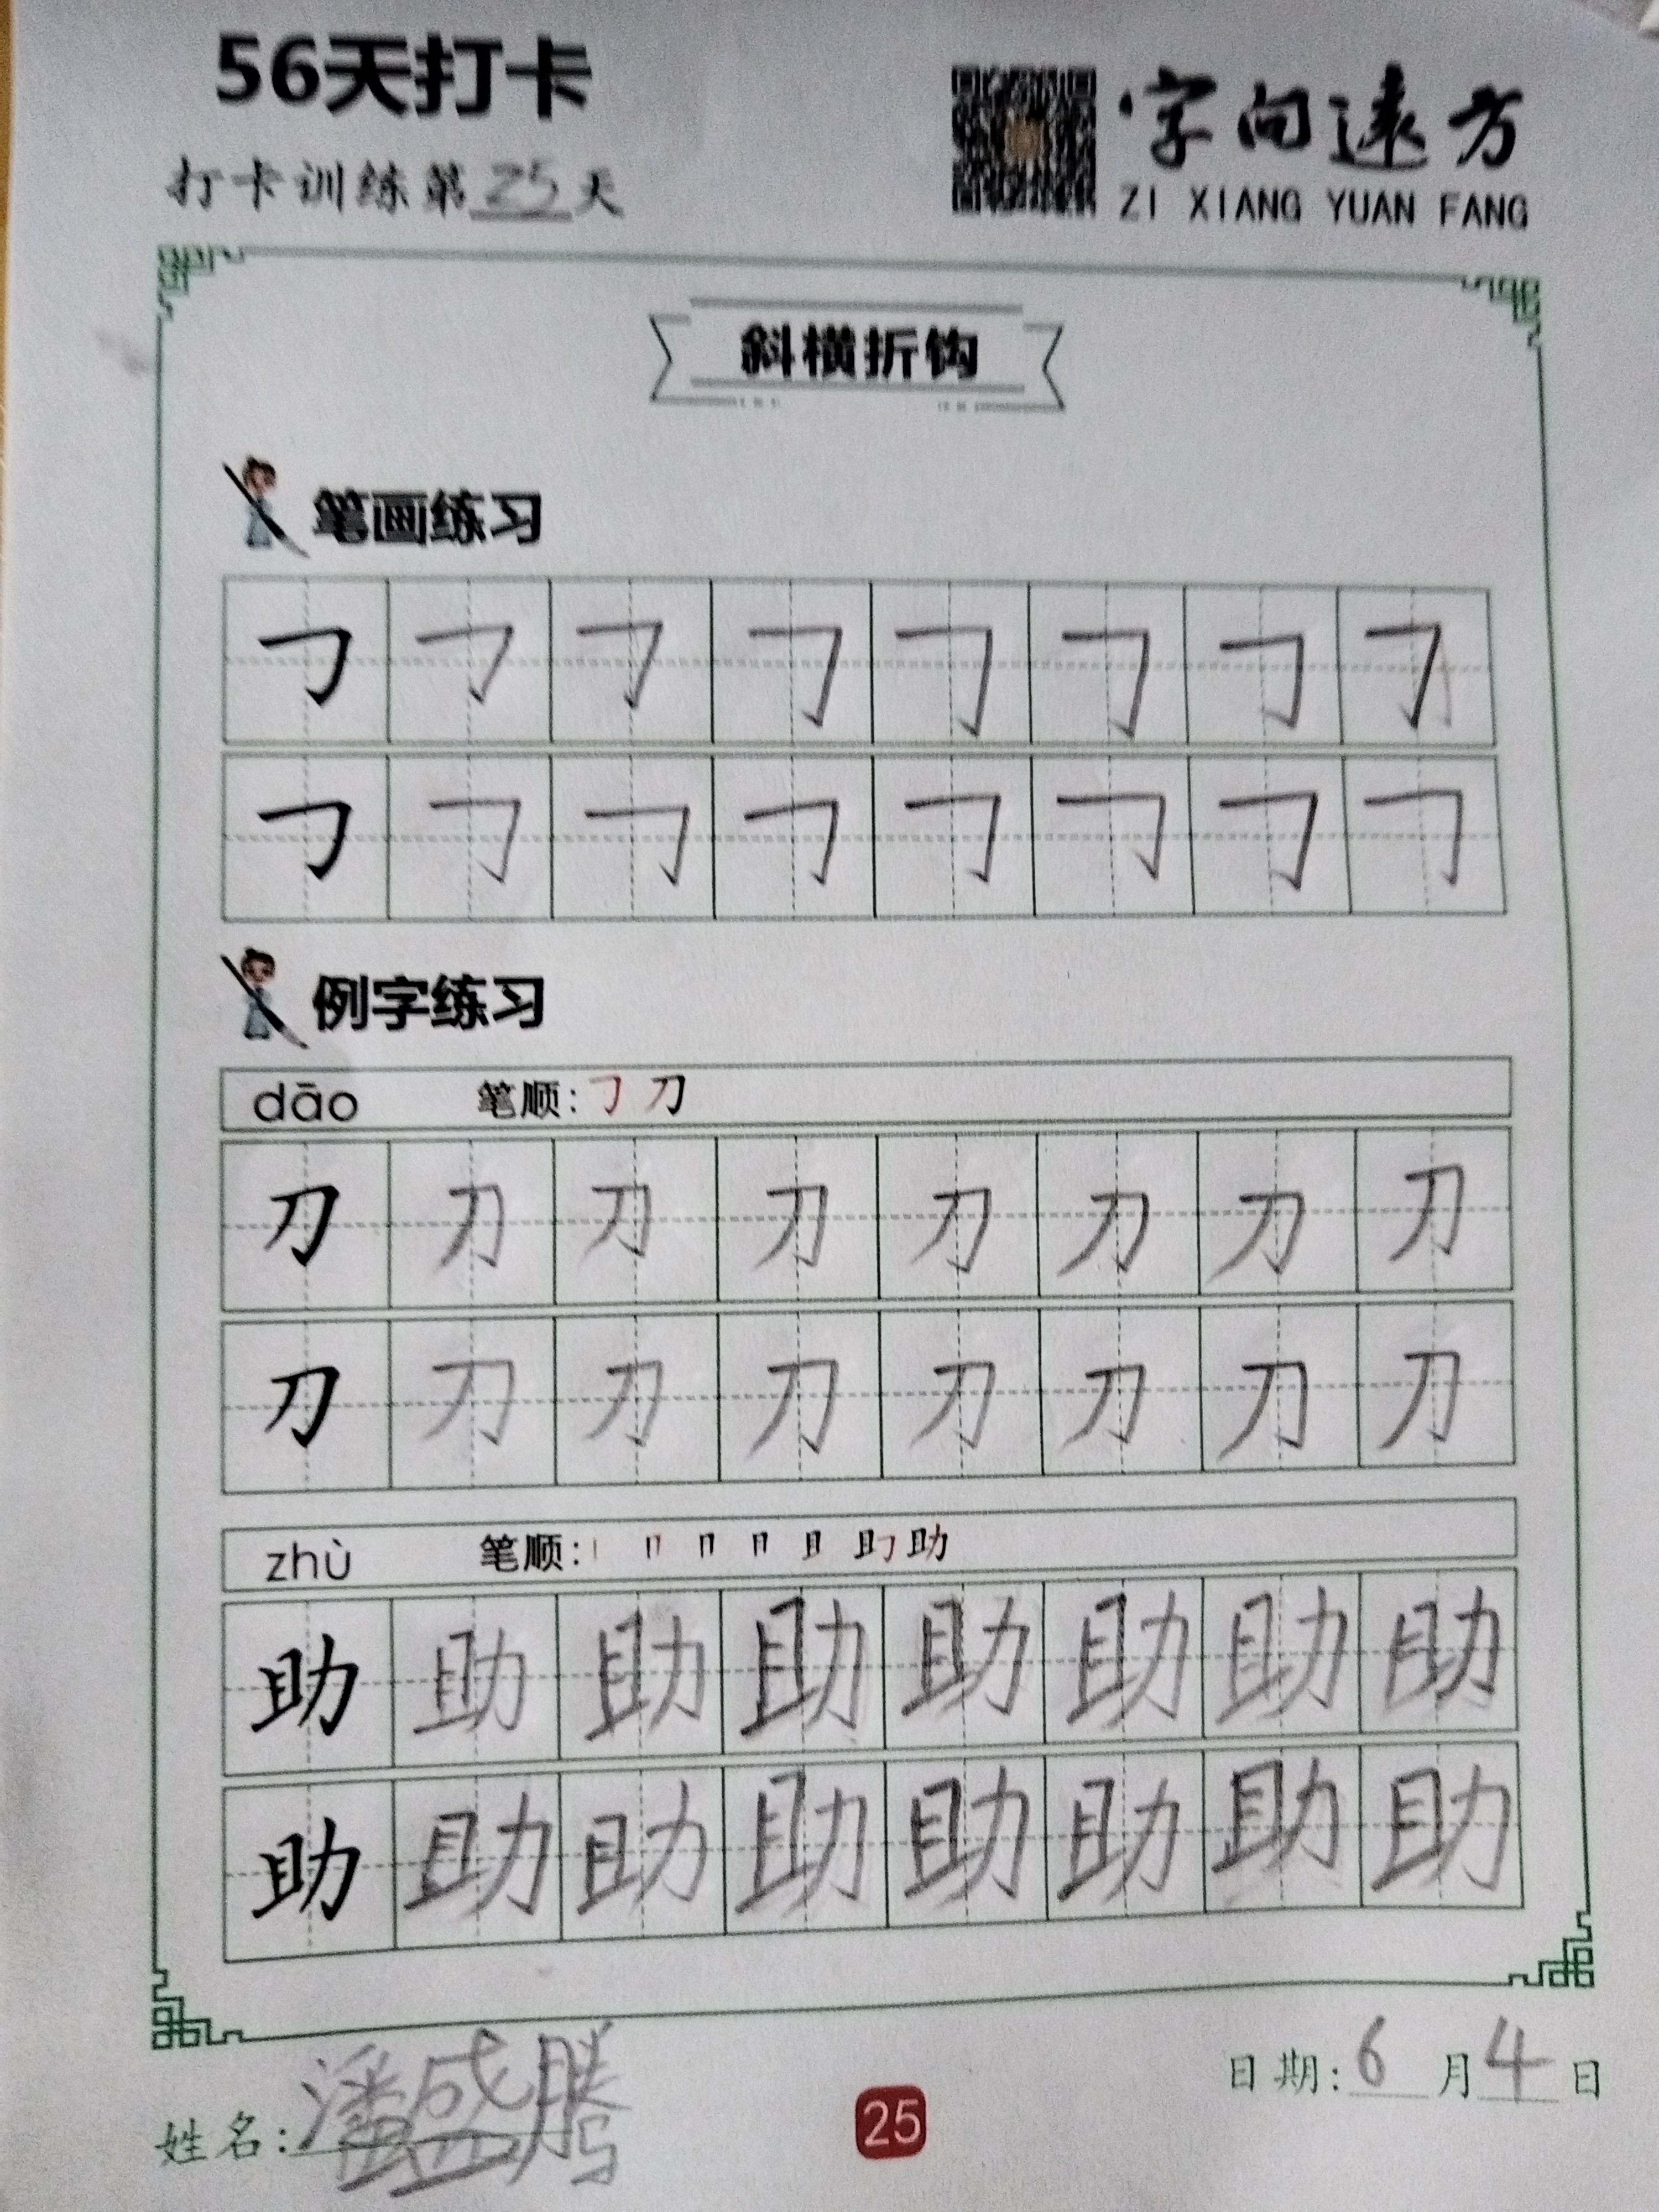 56天打卡
字向远方
打卡训练第25天
ZI XIANG YUAN FANG
斜横折钩
笔画练习
㇆ ㇆ ㇆ ㇆ ㇆ ㇆ ㇆ ㇆
㇆ ㇆ ㇆ ㇆ ㇆ ㇆ ㇆ ㇆
例字练习
dāo 笔顺: ㇆ 刀
刀 刀 刀 刀 刀 刀 刀 刀
刀 刀 刀 刀 刀 刀 刀 刀
zhù 笔顺: 助
助 助 助 助 助 助 助 助
助 助 助 助 助 助 助 助
日期: 6 月 4 日
姓名: 潘盛腾
25